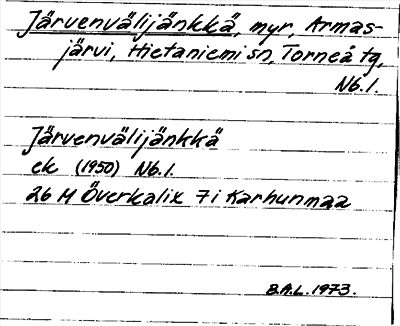 Järvenvälijänkkä, myr, Armas-
järvi, Hietaniemi sn, Torneå tg,
Nb.l.
Järvenvälijänkkä
ek (1950) Nb.l.
26 M Överkalix 7i Karhunmaa
B.A.L. 1973.